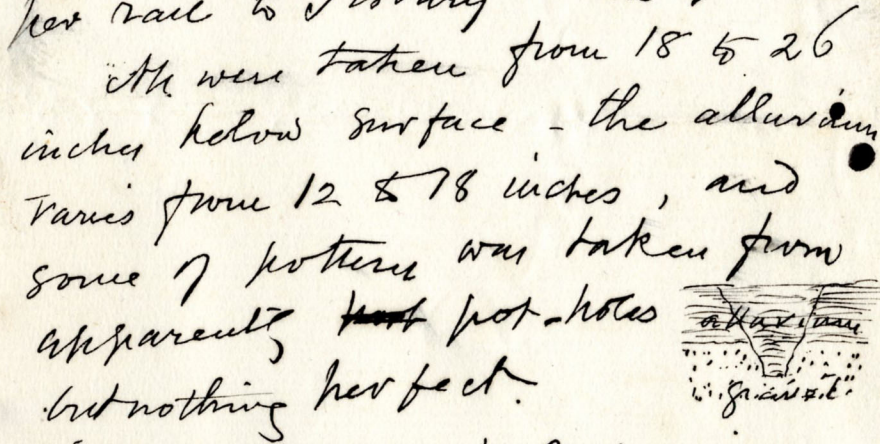 per rail to
All were taken from 18 to 26
inches below surface - the alluvium
varies from 12 to 18 inches, and
some of pottery was taken from
apparently pot-holes
but nothing perfect.
alluvium
granite